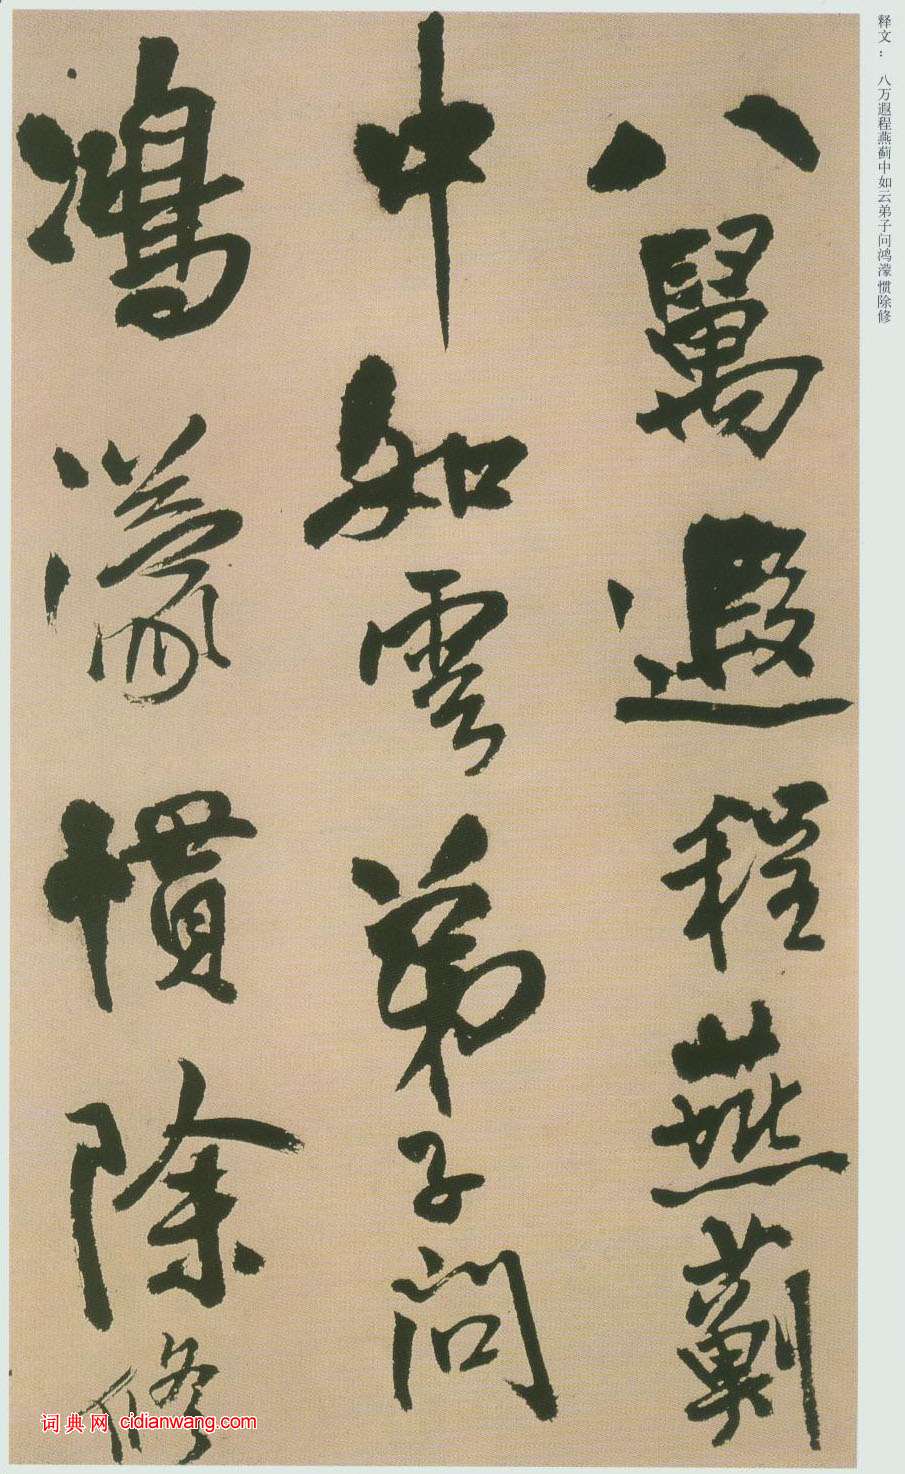 释文： 八万遐程燕蓟中如云弟子问鸿濛惯除修
八萬遐程燕薊
中如雲弟子問
鴻濛慣除修
词典网 cidianwang.com